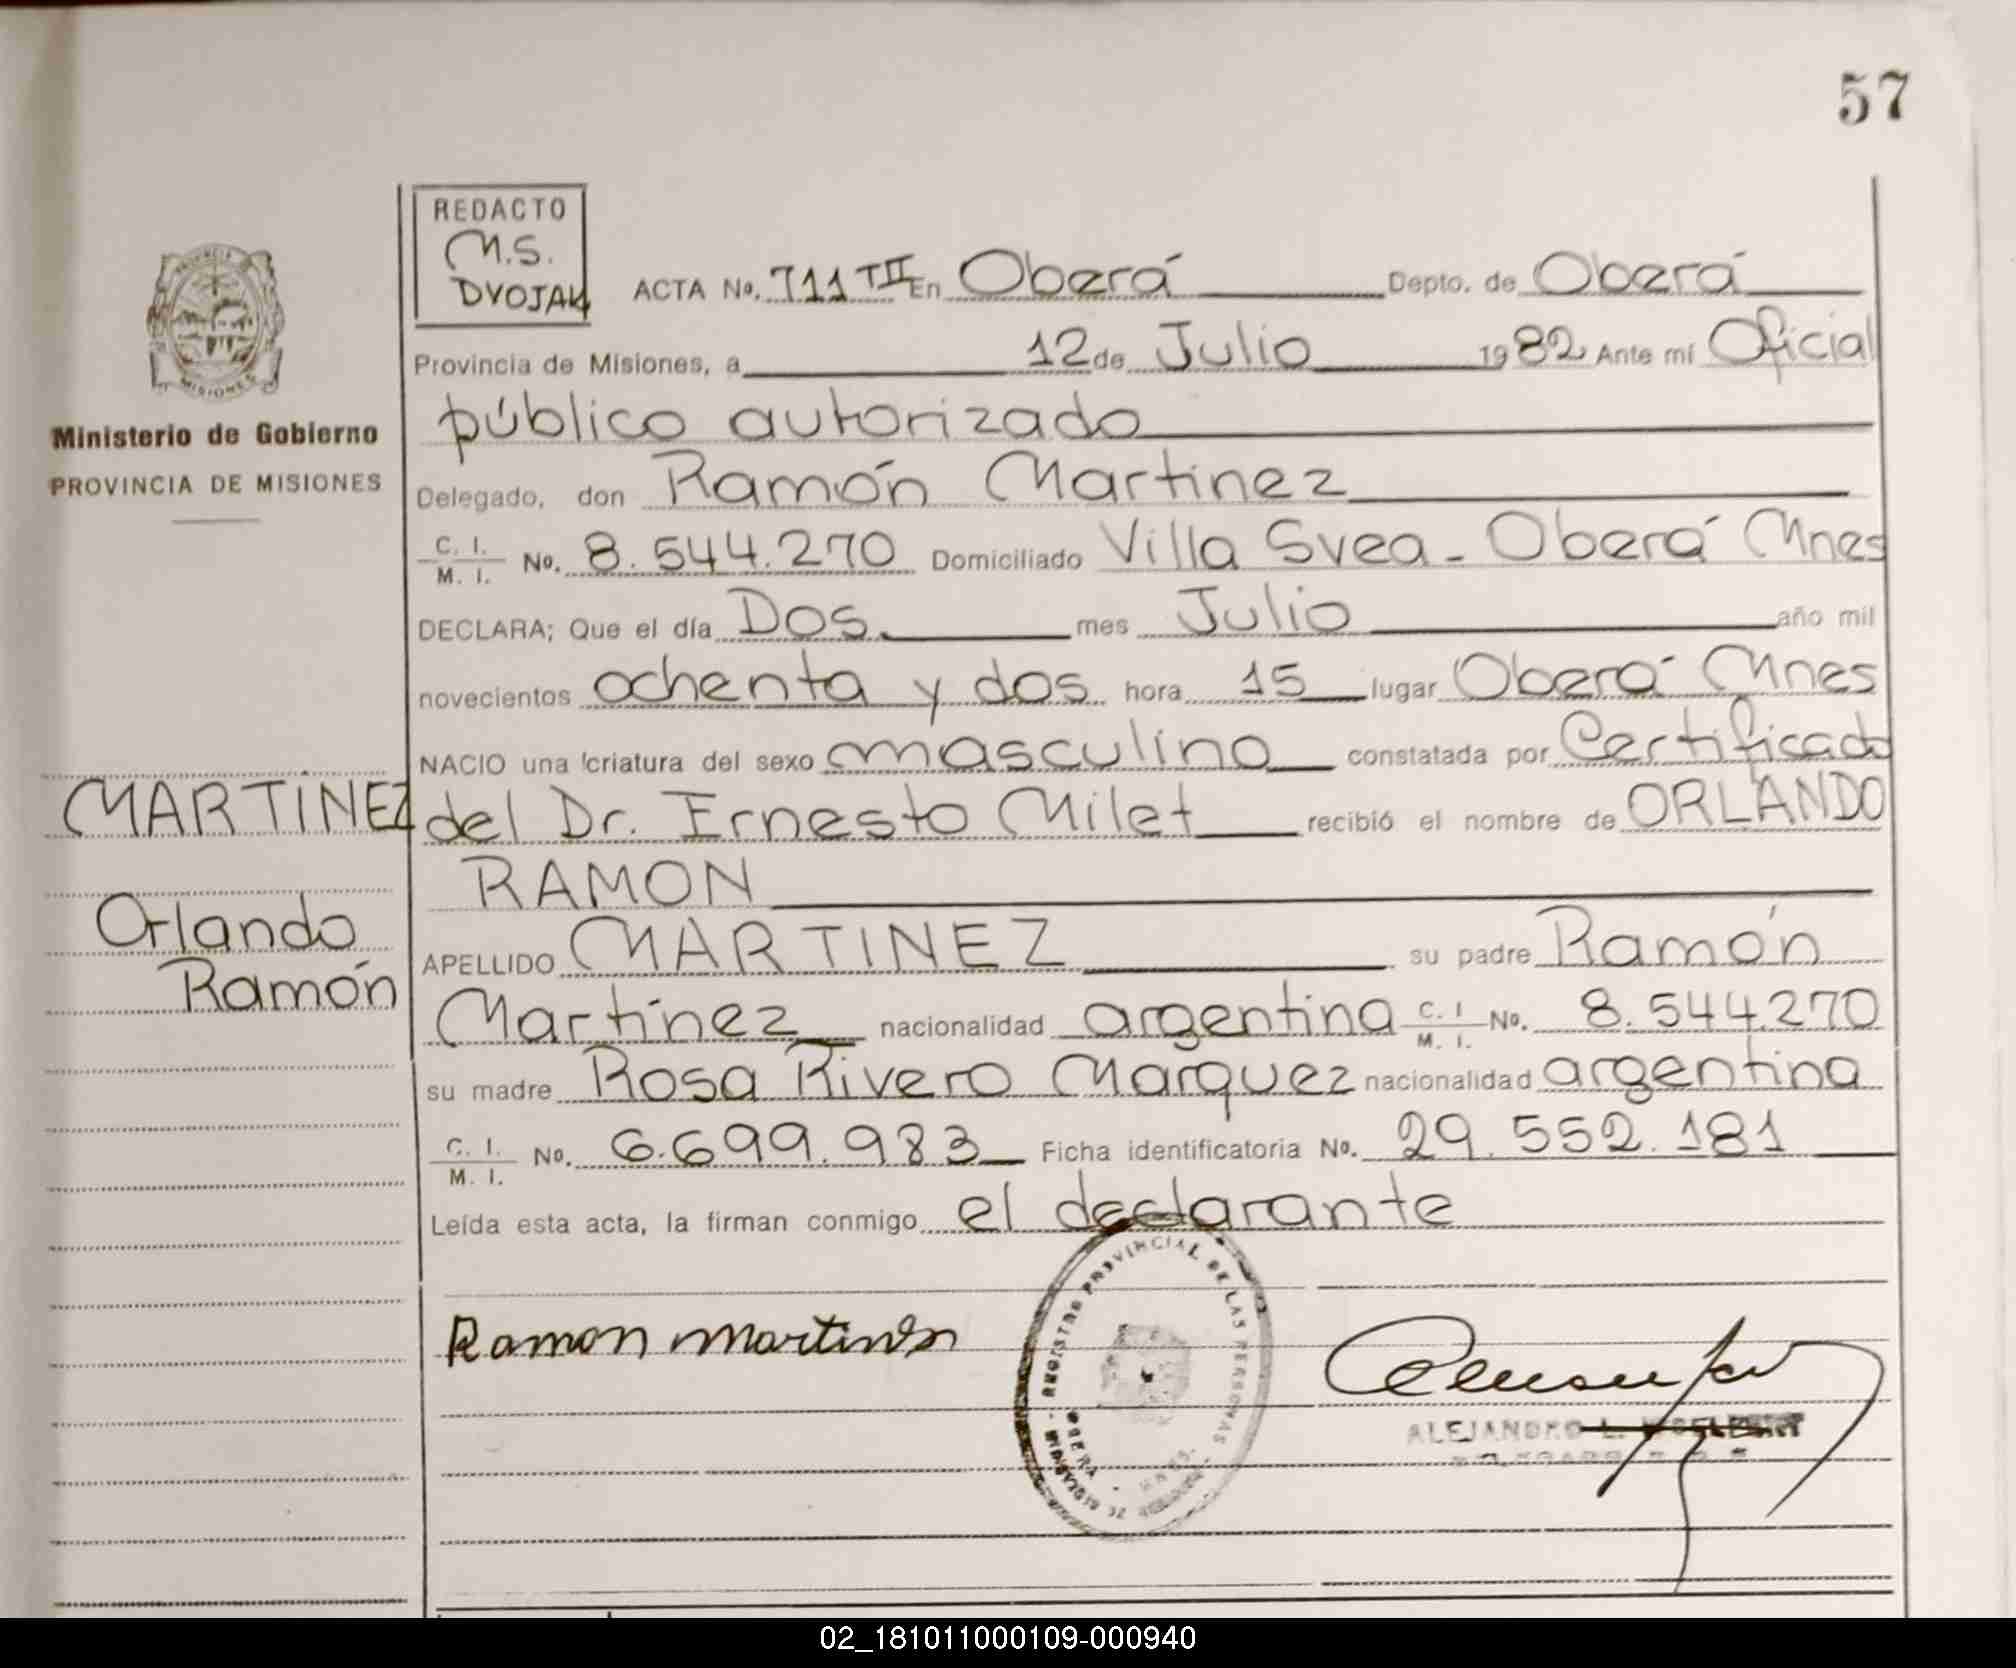 57
REDACTO
M.S.
DVOJAK
ACTA No. 711 TII En Oberá Depto. de Oberá
Provincia de Misiones, a 12 de Julio 1982 Ante mí Oficial
público autorizado
Ministerio de Gobierno
PROVINCIA DE MISIONES
Delegado, don Ramón Martinez
C. I. / M. I. No. 8.544.270 Domiciliado Villa Svea - Oberá Mnes
DECLARA; Que el día Dos mes Julio año mil
novecientos ochenta y dos hora 15 lugar Oberá Mnes
NACIO una criatura del sexo masculino constatada por Certificado
MARTINEZ
del Dr. Ernesto Milet recibió el nombre de ORLANDO
RAMON
Orlando
Ramón
APELLIDO MARTINEZ su padre Ramón
Martínez nacionalidad argentina C. I / M. I. No. 8.544.270
su madre Rosa Rivero Marquez nacionalidad argentina
C. I. / M. I. No. 6.699.983 Ficha identificatoria No. 29.552.181
Leída esta acta, la firman conmigo el declarante
Ramon Martines
REGISTRO PROVINCIAL DE LAS PERSONAS
OBERA MNES.
ALEJANDRO L.
02_181011000109-000940